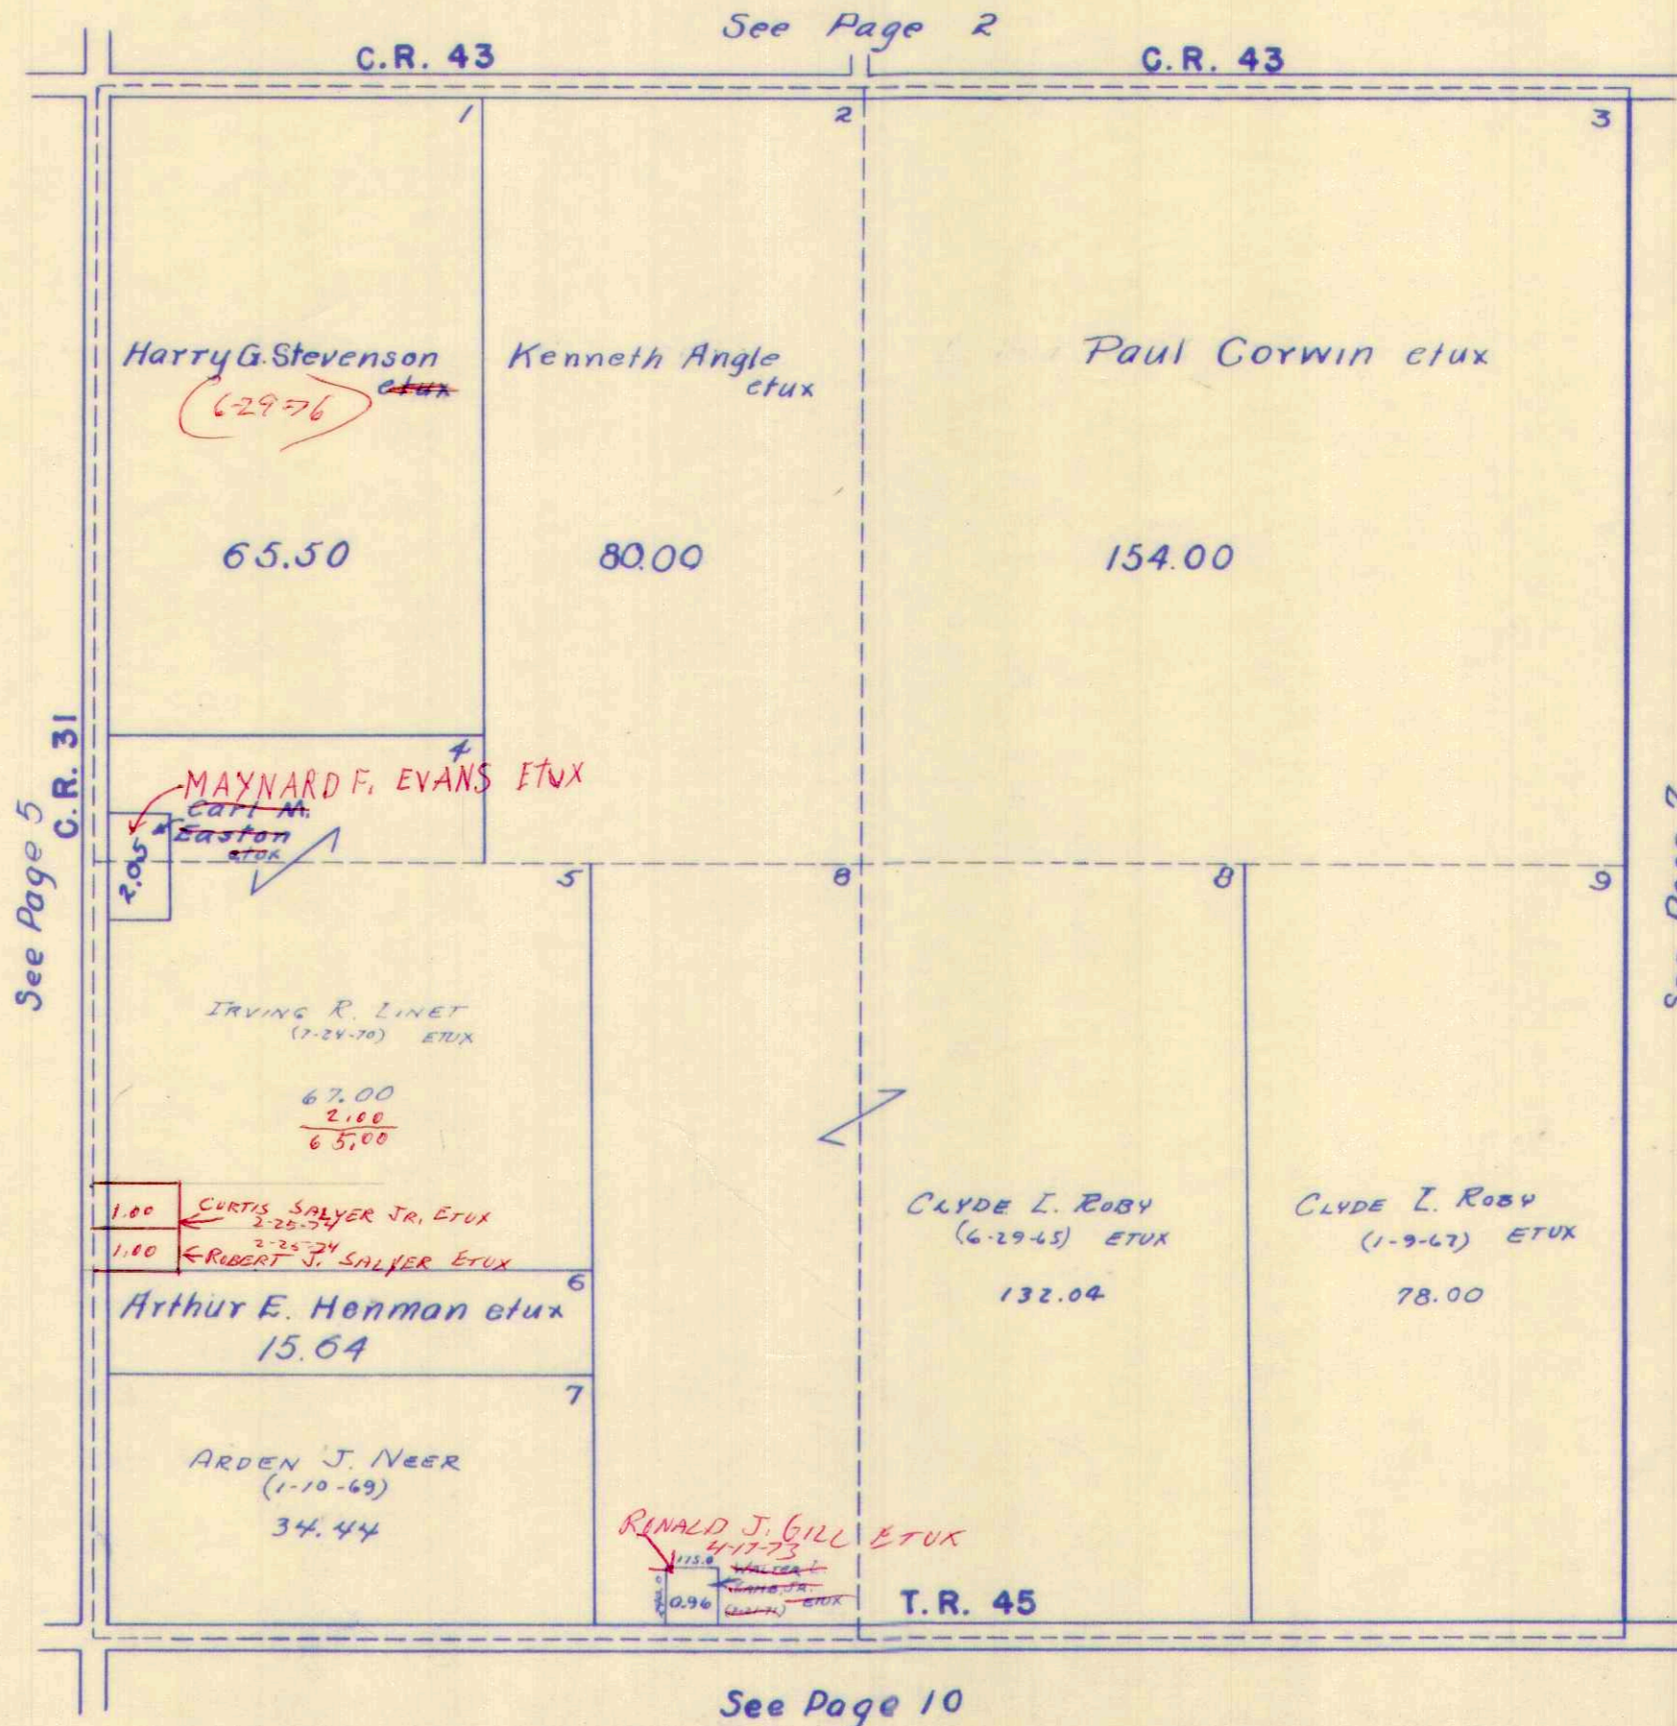 See Page 2
C.R. 43
C.R. 43
1
2
3
Harry G. Stevenson
etux
(6-29-76)
65.50
Kenneth Angle
etux
80.00
Paul Corwin etux
154.00
C.R. 31
See Page 5
4
MAYNARD F. EVANS ETUX
Carl M.
Easton
etux
2.05
5
8
8
9
IRVING R. LINET
(7-24-70) ETUX
67.00
2.00
65.00
1.00
CURTIS SALYER JR. ETUX
2-25-74
1.00
2-25-74
ROBERT J. SALYER ETUX
6
Arthur E. Henman etux
15.64
7
ARDEN J. NEER
(1-10-69)
34.44
CLYDE I. ROBY
(6-29-65) ETUX
132.04
CLYDE I. ROBY
(1-9-67) ETUX
78.00
RONALD J. GILL ETUX
4-17-73
175.0
WALTER
JR.
ETUX
0.96
T.R. 45
See Page 10